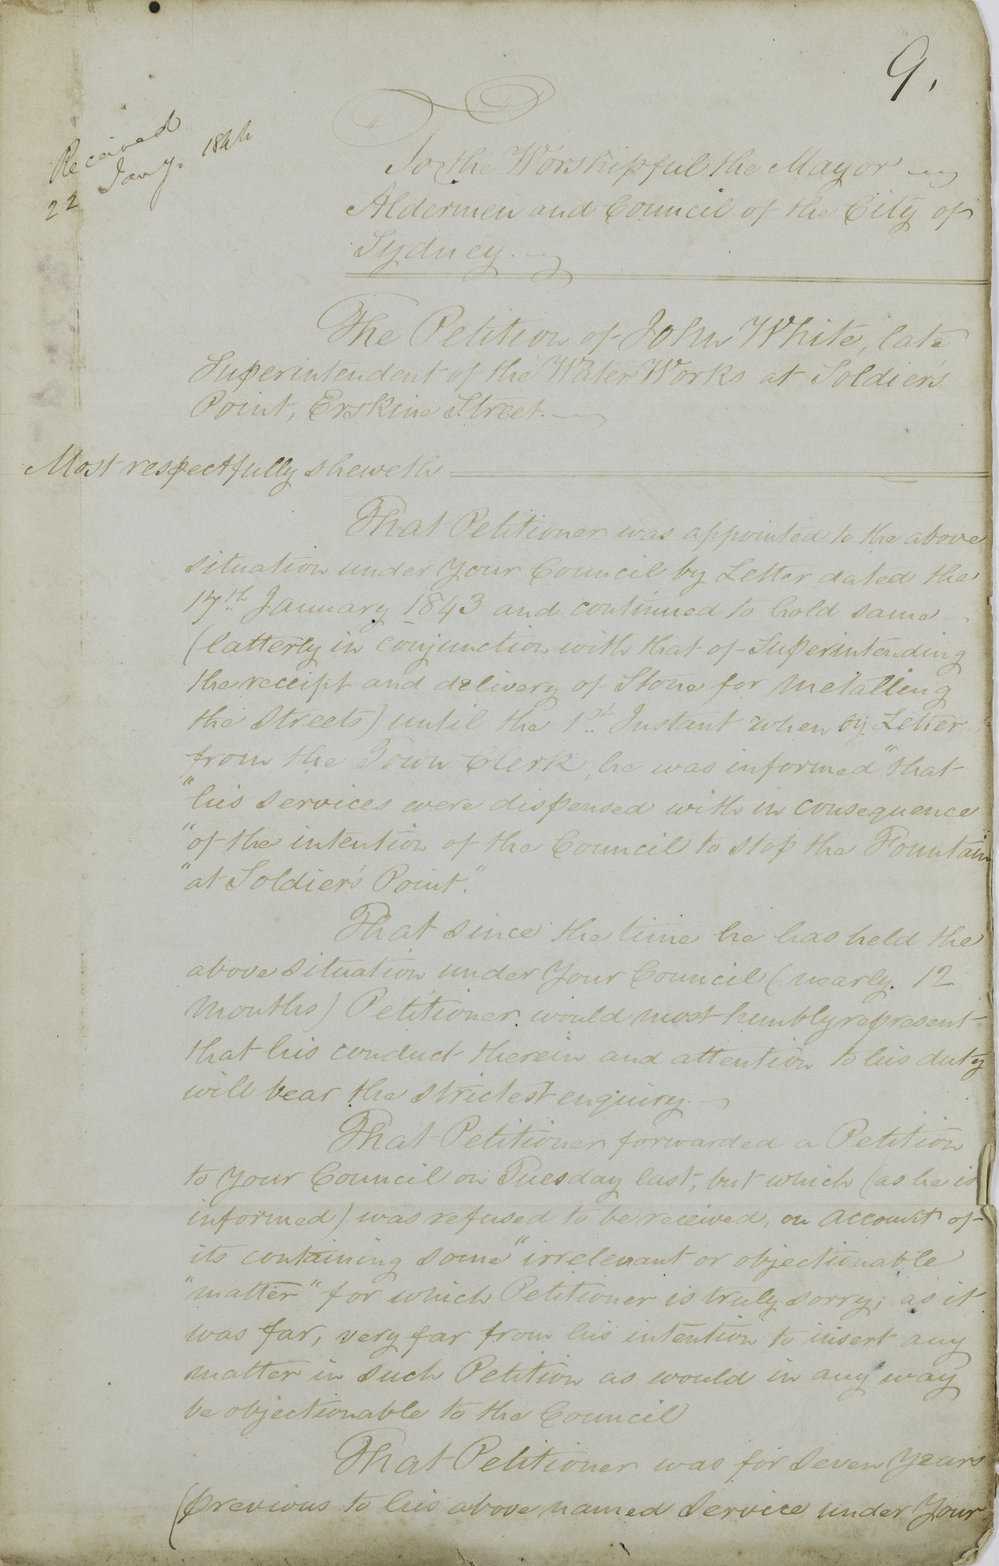 9.
Received
22 Jany. 1844
To the Worshipful the Mayor
Aldermen and Council of the City of
Sydney.
The Petition of John White, late
Superintendent of the Water Works at Soldier's
Point, Erskine Street.
Most respectfully sheweth
That Petitioner was appointed to the above
situation under Your Council by Letter dated the
17th January 1843 and continued to hold same
(latterly in conjunction with that of Superintending
the receipt and delivery of Stone for metalling
the Streets) until the 1st Instant when by Letter
from the Town Clerk, he was informed "that
"his services were dispensed with in consequence
"of the intention of the Council to stop the Fountain
"at Soldier's Point."
That since the time he has held the
above situation under Your Council (nearly 12
Months) Petitioner would most humbly represent
that his conduct therein and attention to his duty
will bear the strictest enquiry.
That Petitioner forwarded a Petition
to Your Council on Tuesday last, but which (as he is
informed) was refused to be received, on account of
its containing some "irrelevant or objectionable
"matter" for which Petitioner is truly sorry; as it
was far, very far from his intention to insert any
matter in such Petition as would in any way
be objectionable to the Council
That Petitioner was for Seven Years
(previous to his above named Service under Your